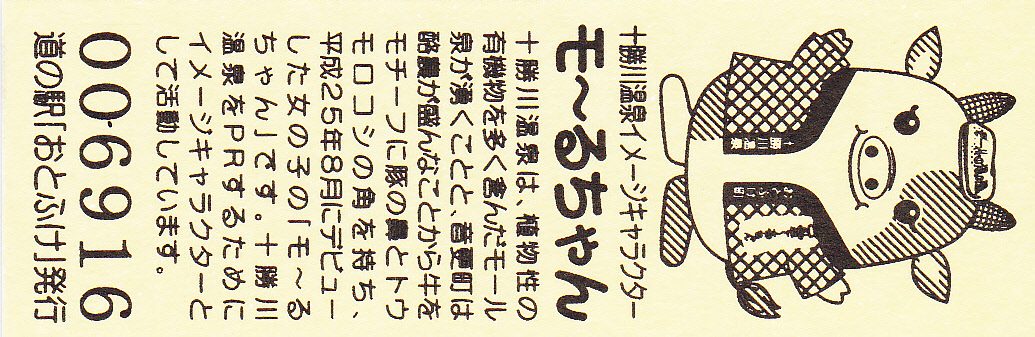 十勝川温泉イメージキャラクター
モ〜るちゃん
十勝川温泉は、植物性の
有機物を多く含んだモール
泉が湧くことと、音更町は
酪農が盛んなことから牛を
モチーフに豚の鼻とトウ
モロコシの角を持ち、
平成25年8月にデビュー
した女の子の「モ〜る
ちゃん」です。十勝川
温泉をPRするために
イメージキャラクターと
して活動しています。
006916
道の駅「おとふけ」発行
十勝川温泉